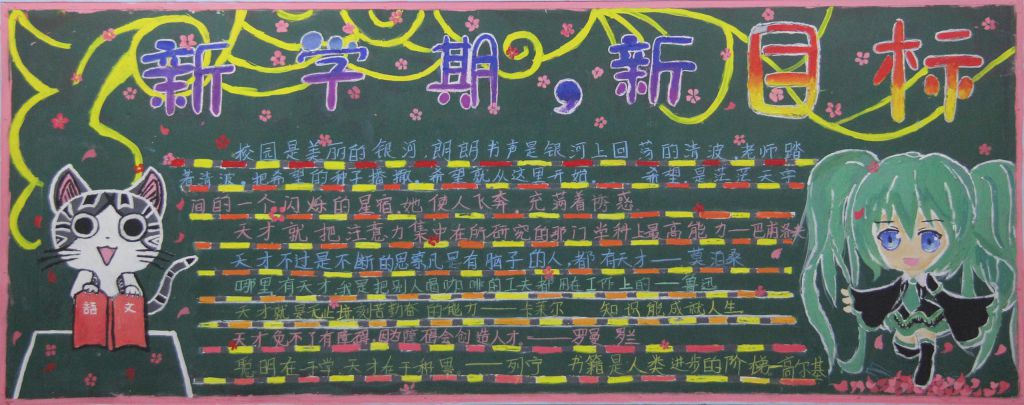 新学期，新目标
校园是美丽的银河，朗朗书声是银河上回荡的清波，老师踏
着清波，把希望的种子播撒，希望就从这里开始。 希望是茫茫天宇
间的一个闪烁的星宿，她使人飞奔，充满着诱惑
天才就把注意力集中在所研究的那门学科上最高能力——巴甫洛夫
天才不过是不断的思索凡是有脑子的人，都有天才——莫泊桑
哪里有天才我是把别人喝咖啡的工夫都用在工作上的——鲁迅
天才就是无止境刻苦勤奋的能力——卡莱尔 知识能成就人生
天才免不了有障碍，因为障碍会创造人才。——罗曼罗兰
聪明在于学，天才在于积累——列宁 书籍是人类进步的阶梯—高尔基
語文